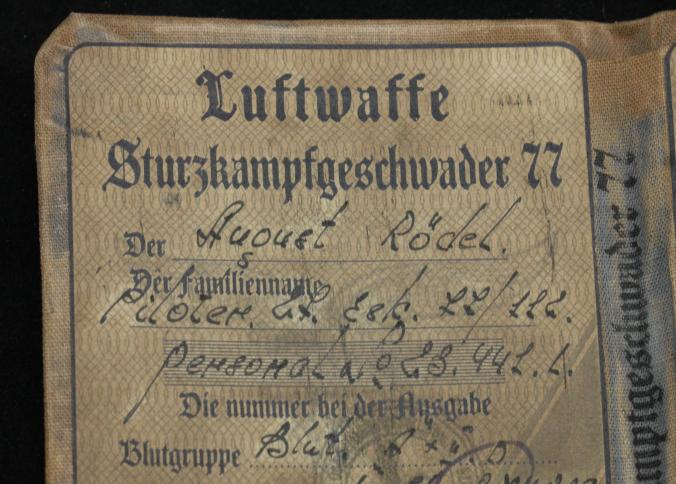 Luftwaffe
Sturzkampfgeschwader 77
Der August Rödel.
Der Familienname
Piloten. Lt. Esk. LL/111.
Personal No 28.441.1.
Die nummer bei der Ausgabe
Blutgruppe Blut. A
mpfgeschwader 77